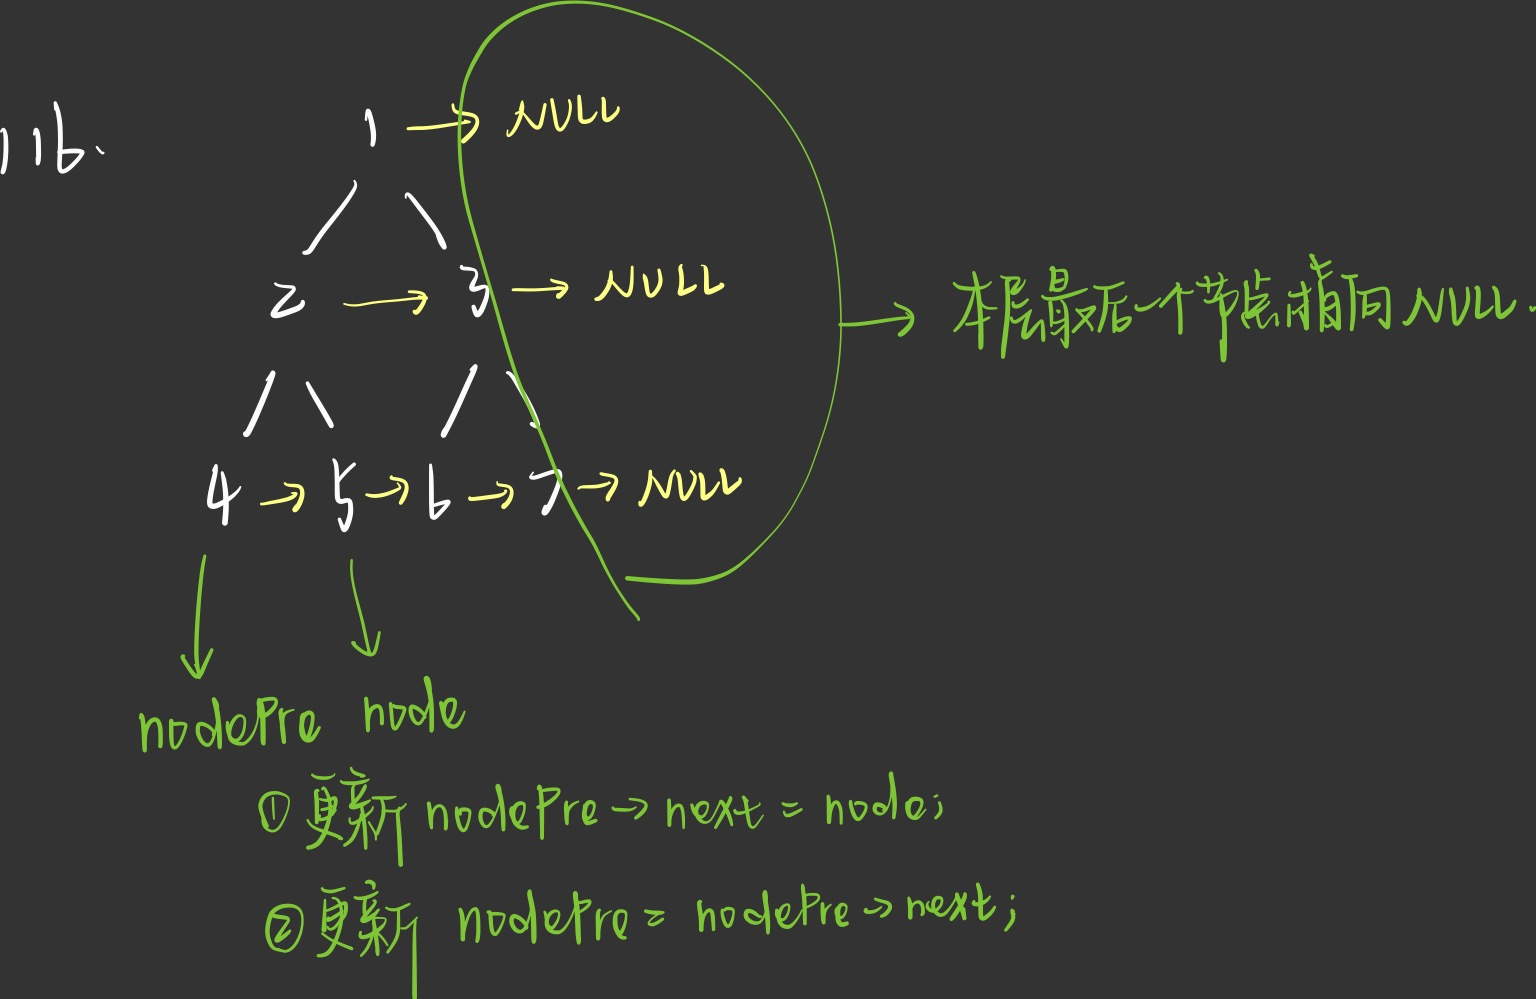 116.
1 → NULL
2 → 3 → NULL
本层最后一个节点指向NULL.
4 → 5 → 6 → 7 → NULL
nodePre node
① 更新 nodePre → next = node;
② 更新 nodePre = nodePre → next;